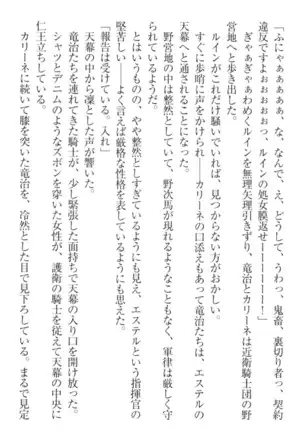 「ふにゃぁぁぁぁぁ、な、なんで、え、どうして、うわっ、鬼畜、裏切り者っ、契約
違反ですよぉぉぉぉっ、ルインの処女膜返せーーーーーー！」
ぎゃぁぎゃぁわめくルインを無理矢理引きずり、竜治とカリーネは近衛騎士団の野
営地へと歩き出した。
ルインがこれだけ騒いでいれば、見つからない方がおかしい。
すぐに歩哨に声をかけられ――カリーネの口添えもあって竜治たちは、エステルの
天幕へと通されることになった。
野営地の中は整然としていて、野次馬が現れるようなこともなく、軍律は厳しく守
られているようだ。
とはいうものの、やや整然としすぎているようにも見え、エステルという指揮官の
堅苦しい――よく言えば厳格な性格を表しているようにも思えた。
「報告は受けている。入れ」
天幕の中から凜とした声が響いた。
竜治たちを連れてきた騎士が、少し緊張した面持ちで天幕の入り口を開け放った。
シャツとデニムのようなズボンを穿いた女性が、護衛の騎士を従えて天幕の中央に
仁王立ちしている。
カリーネに続いて膝を突いた竜治を、冷然とした目で見下ろしている。まるで見定